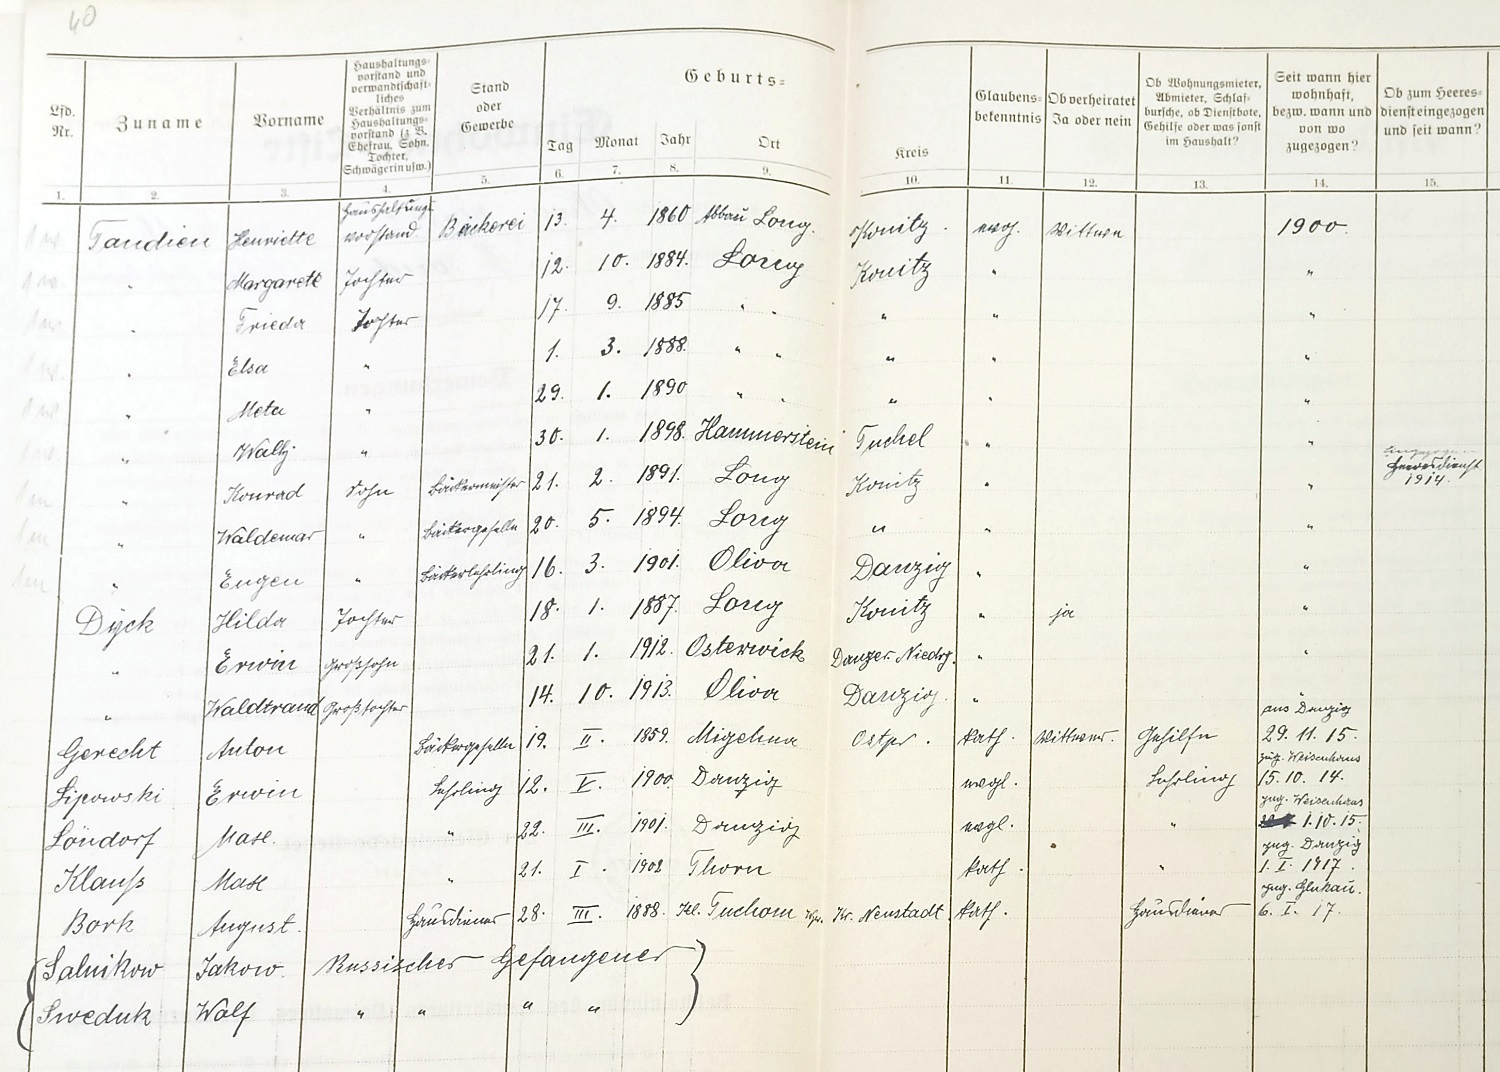 40
Lfd. Nr.
Zuname
Vorname
Haushaltungs-
vorstand und
verwandtschaft-
liches
Verhältnis zum
Haushaltungs-
vorstand (z. B.
Ehefrau, Sohn,
Tochter,
Schwägerin usw.)
Stand
oder
Gewerbe
Geburts-
Tag Monat Jahr Ort
Kreis
Glaubens-
bekenntnis
Ob verheiratet
Ja oder nein
Ob Wohnungsmieter,
Abmieter, Schlaf-
bursche, ob Dienstbote,
Gehilfe oder was sonst
im Haushalt?
Seit wann hier
wohnhaft,
bezw. wann und
von wo
zugezogen?
Ob zum Heeres-
dienst eingezogen
und seit wann?
1. 2. 3. 4. 5. 6. 7. 8. 9. 10. 11. 12. 13. 14. 15.
Tandien Henriette Haushaltungs-
vorstand Bäckerei 13. 4. 1860 Abbau Long. Konitz. evgl. Wittwe 1900.
" Margarete Tochter 12. 10. 1884. Long Konitz " "
" Frieda Tochter 17. 9. 1885 " " " " "
" Elsa " 1. 3. 1888. " " " " "
" Meta " 29. 1. 1890 " " " " "
" Wally " 30. 1. 1898. Hammerstein Tuchel " "
" Konrad Sohn Bäckermeister 21. 2. 1891. Long Konitz " Heeresdienst
1914.
" Waldemar " Bäckergeselle 20. 5. 1894. Long " " "
" Eugen " Bäckerlehrling 16. 3. 1901. Oliva Danzig " "
Dyck Hilda Tochter 18. 1. 1887. Long Konitz " ja "
" Erwin Großsohn 21. 1. 1912. Osterwick Danzger Niedrg. " "
" Waldtraud Großtochter 14. 10. 1913. Oliva Danzig. " "
Gerecht Anton Bäckergeselle 19. II. 1859. Migehna Ostpr. kath. Wittwer. Gehilfe aus Danzig
29. 11. 15.
Lipowski Erwin Lehrling 12. V. 1900. Danzig evgl. Lehrling zug. Weisenhaus
15. 10. 14.
Löndorf Max. " 22. III. 1901. Danzig evgl. " zug. Weisenhaus
1. 10. 15.
Klauß Max " 21. I. 1902 Thorn kath. " zug. Danzig
1. I. 1917.
Bork August. Hausdiener 28. III. 1888. Kl. Tuchom Wpr. Kr. Neustadt kath. Hausdiener zug. Glukau.
6. I. 17.
Salnikow Jakow. Russischer Gefangener
Sweduk Wolf " " " "